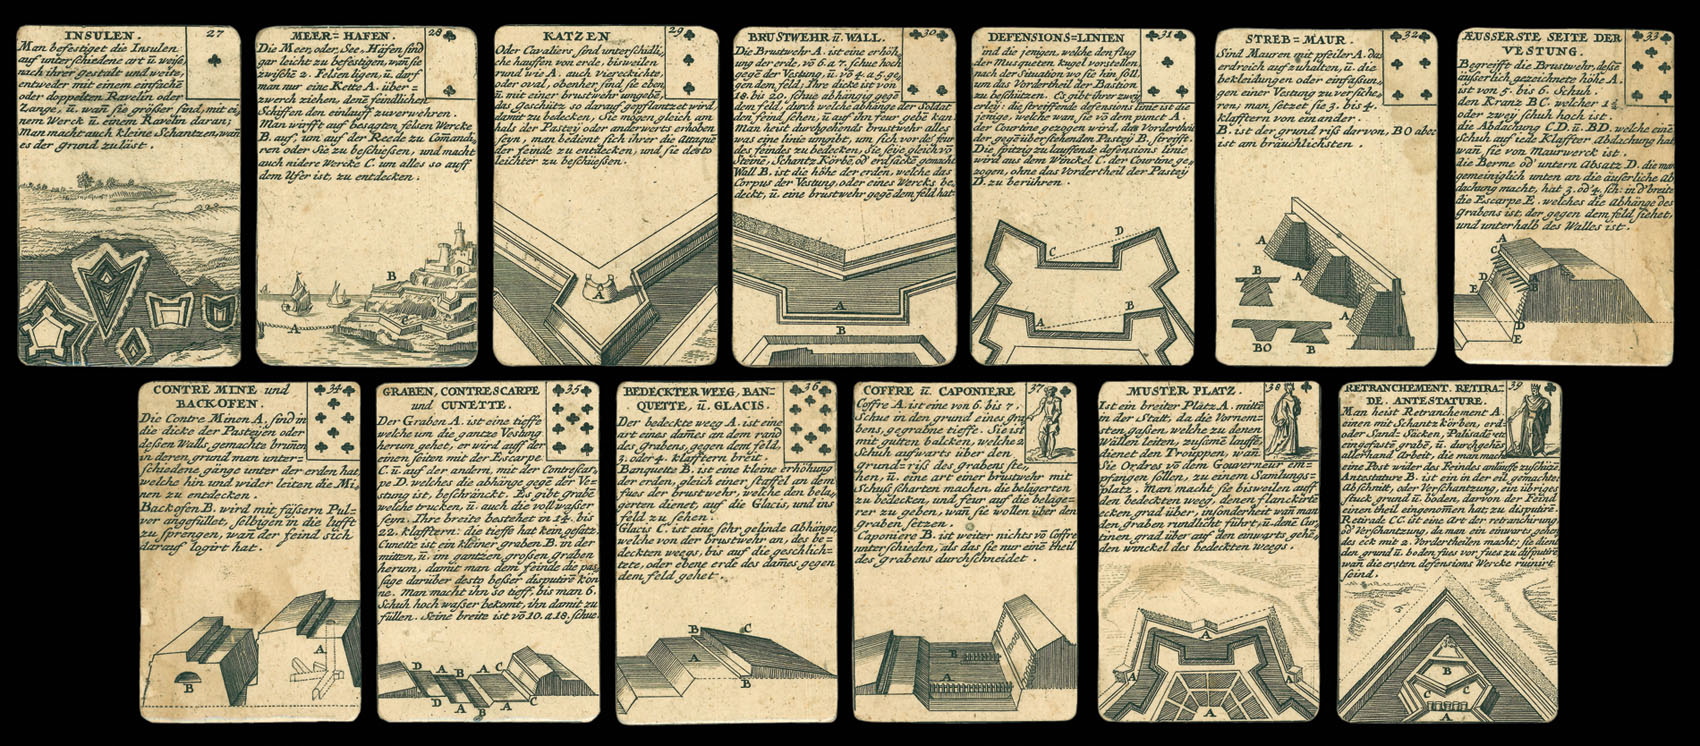 INSULEN.
27
Man befestiget die Insulen
auf unterschiedene art ü. weise,
nach ihrer gestalt und weite,
entweder mit einem einfachē
oder doppelten Ravelin oder
Zange, ü. wan sie größer sind, mit ei,
nem Werck ü. einem Ravelin daran;
man macht auch kleine Schantzen, wañ
es der grund zuläst.
MEER=HAFEN.
28
Die Meer, oder, See, Häfen sind
gar leicht zu befestigen, wan sie
zwischē 2. Felsen ligen, ü. darf
man nur eine Kette A. über=
zwerch ziehen, denē feindlichen
Schiffen den einlauff zuverwehren.
Man wirfft auf besagten felsen Wercke
B. auf, um auf der Reede zu Comandi,
ren oder Sie zu beschiesen, und macht
auch nidere Wercke C. um alles so auff
dem Ufer ist, zu entdecken.
B
A
KATZEN
29
Oder Cavaliers, sind unterschidli,
che hauffen von erde, bisweilen
rund wie A. auch viereckichte,
oder oval, obenher sind sie eben
ü. mit einer brustwehr umgebē,
das geschütz so darauf gepflantzet wird,
damit zu bedecken, Sie mögen gleich am
hals der Pastey oder anderwerts erhoben
seyn, man bedienet sich ihrer die Attaquē
der feinde zu entdecken, und sie desto
leichter zu beschiesen.
A
BRUSTWEHR ü. WALL.
30
Die Brustwehr A. ist eine erhöh,
ung der erde, vō 6. a 7. schue hoch
gegē der Vestung, ü. vō 4. a 5. ge,
gen dem feld, Ihre dicke ist von
18. bis 20. schue abhängig gegē
dem feld, durch welche abhänge der Soldat
den feind sehen, ü. auf ihn feur gebē kan.
Man heist durchgehends brustwehr alles
was eine linie umgibt, um sich vor dē feur
des feindes zu bedecken, Sie seyē gleich vō
Steinē, Schantz Körbē, od erdsäckē gemacht
Wall B. ist die höhe der erden, welche das
Corpus der Vestung, oder eines Wercks be,
deckt, ü. eine brustwehr gegē dem feld hat.
A
B
DEFENSIONS=LINIEN
31
sind die jenigen, welche den flug
der Musqueten kugel vorstellen,
nach der Situation wo sie hin soll,
um das Vordertheil der Bastion
zu beschützen. Es gibt ihrer zwey
erley; die streiffende defensions linie ist die
jenige, welche wan, sie vō dem punct A.
der Courtine gezogen wird, das Vordertheil
der gegen über stehenden Pastey B. streifft.
Die spitze zu lauffende defensions linie
wird aus dem Winckel C. der Courtine ge,
zogen, ohne das Vordertheil der Pastey
D. zu berühren.
C
D
A
B
STREB=MAUR.
32
Sind Mauren mit pfeiler A. das
erdreich auf zuhalten, ü. die
bekleidungen oder einfassun,
gen einer Vestung zu versiche,
ren; man setzet sie 3. bis 4.
klafftern von einander.
B. ist der grund riß darvon, BO aber
ist am bräuchlichsten.
A
B
A
A
BO
B
ÆUSSERSTE SEITE DER
VESTUNG.
33
Begreifft die Brustwehr, deßē
äuserlich, gezeichnete höhe A.
ist von 5. bis 6. Schuh.
den Kranz BC. welcher 1½
oder zwey schuh hoch ist.
die Abdachung CD. ü. BD. welche eine
Schuh auf iede Klaffter Abdachung hat
wañ sie von Maurwerck ist.
die Berme od' untern Absatz D. die man
gemeiniglich unten an die äuserliche Ab
dachung macht, hat 3. od' 4. sch: in d' breite
die Escarpe E. welches die Abhänge des
Grabens ist, der gegen dem feld siehet,
und unterhalb des Walles ist.
A
C
B
D
E
D
E
CONTRE MINE und
BACKOFEN.
34
Die Contre Minen A. sind in
die dicke der Pasteyen oder
deßen Walls, gemachte brunen
in deren grund man unter=
schiedene gänge unter der erden hat,
welche hin und wider leiten die Mi,
nen zu entdecken.
Backofen B. wird mit fäßern Pul=
ver angefüllet, selbigen in die lufft
zu sprengen, wan der feind sich
darauf logirt hat.
B
A
GRABEN, CONTRESCARPE
und CUNETTE.
35
Der Graben A. ist eine tieffe
welche um die ganze Vestung
herum gehet, er wird auf der
einen seiten mit der Escarpe
C. ü. auf der andern, mit der Contrescar,
pe D. welches die abhänge gegē der Ve=
stung ist, beschränckt. Es gibt grabē
welche trucken, ü. auch die voll waßer
seyn. Ihre breite bestehet in 14. bis
22. klafftern: die tieffe hat kein gesätz.
Cunette ist ein kleiner graben B. in der
mitten, ü. im gantzen großen graben
herum, damit man dem feinde die pas,
sage darüber desto beßer disputirē kön
ne. Man macht ihn so tieff, bis man 6.
Schuh hoch waßer bekomt, ihn damit zu
füllen. Seine breite ist vō 10. a 18. schue.
D
A
B
A
C
D
A
B
A
C
BEDECKTER WEEG, BAN=
QUETTE, ü. GLACIS.
36
Der bedeckte weeg A. ist eine
art eines dames an dem rand
des grabens, gegen dem feld,
3. oder 4. klafftern breit.
Banquette B. ist eine kleine erhöhung
der erden, gleich einer staffel an dem
fues der brustwehr, welche den bela,
gerten dienet, auf die Glacis, und ins
feld zu sehen.
Glacis C. ist eine sehr gelinde Abhänge,
welche von der brustwehr an, des be=
deckten weegs, bis auf die geschlich=
tete, oder ebene erde des dames gegen
dem feld gehet.
B
C
A
B
COFFRE ü. CAPONIERE
37
Coffre A. ist eine von 6. bis 7.
Schue in den grund eines gra
bens, gegrabne tieffe. Sie ist
mit gutten balcken, welche 2
Schuh aufwarts über den
grund=riß des grabens ste,
hen, ü. eine art einer brustwehr mit
Schußscharten machen, die belägerten
zu bedecken, und feur auf die beläge=
rer zu geben, wan sie wollen über den
graben setzen.
Caponiere B. ist weiter nichts vō Coffre
unterschieden, als das sie nur einē theil
des grabens durchschneidet.
B
A
MUSTER PLATZ.
38
Ist ein breiter Platz A. mittē
in der Statt, da die Vornem,
sten, gaßen, welche zu denen
Wällen leiten, zusamē lauffē,
dienet den Trouppen, wan
Sie Ordres vō dem Gouverneur em=
pfangen sollen, zu einem Samlungs=
platz. Man macht sie bisweilen auff
den bedeckten weeg, denen flanckirtē
ecken grad über, insonderheit wañ man
den graben rundlicht führt, ü. denē Cur,
tinen grad über auf den einwarts gehē,
den winckel des bedeckten weegs.
A
A
A
A
RETRANCHEMENT. RETIRA=
DE. ANTESTATURE.
39
Man heist Retranchement A.
einen mit Schantz körben, erd=
oder Sand= Säcken, Palisadē etc
eingefastē grabē, ü. durchgehēs
allerhand Arbeit, die man macht
eine Post wider des Feindes anlauffe zuschüzē.
Antestature B. ist ein in der eil, gemachte
Abschnitt, oder Verschantzung, ein übriges
stuck grund ü. boden, darvon der Feind
einen theil eingenomen hat, zu disputirē.
Retirade CC ist eine art der retranchirung,
od' Verschantzung, da man ein einwarts gehē
des eck mit 2. Vordertheilen macht; sie dienet
den grund ü. boden fues vor fues zu disputirē
wan die ersten defensions Wercke ruinirt
seind.
B
C
C
A